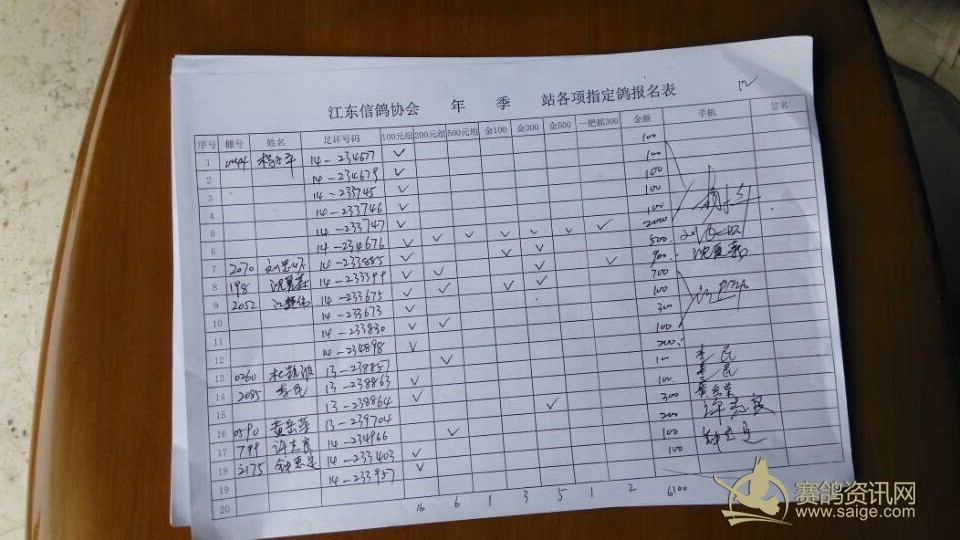 12
江东信鸽协会 年 季 站各项指定鸽报名表
序号 棚号 姓名 足环号码 100元组 200元组 500元组 金100 金300 金500 一把抓300 金额 手机 签名
1 14-234677 ✓ 100
2 14-234679 ✓ 100
3 14-233745 ✓ 100
4 14-233746 ✓ 100
5 14-233747 ✓
6 14-234676 ✓ ✓ ✓ ✓ ✓ ✓ ✓ 2000
7 2070 14-233885 ✓ ✓ 500
8 198 14-233399 ✓ ✓ ✓ ✓ 900
9 2052 14-233675 ✓ ✓ ✓ ✓ 700
10 14-233673 ✓ 100
11 14-233830 ✓ ✓ 300
12 14-234898 ✓ 100
13 0260 13-238857 ✓ 200
14 2085 李民 13-238863 ✓ 100 李民
15 13-238864 ✓ 100 李民
16 0590 黄岳荣 13-239704 ✓ 300 黄岳荣
17 799 许志良 14-234966 ✓ 200 许志良
18 2175 14-233403 ✓ 100
19 14-233957 ✓ 100
20
16 6 1 3 5 1 2 6100
赛鸽资讯网
www.saige.com